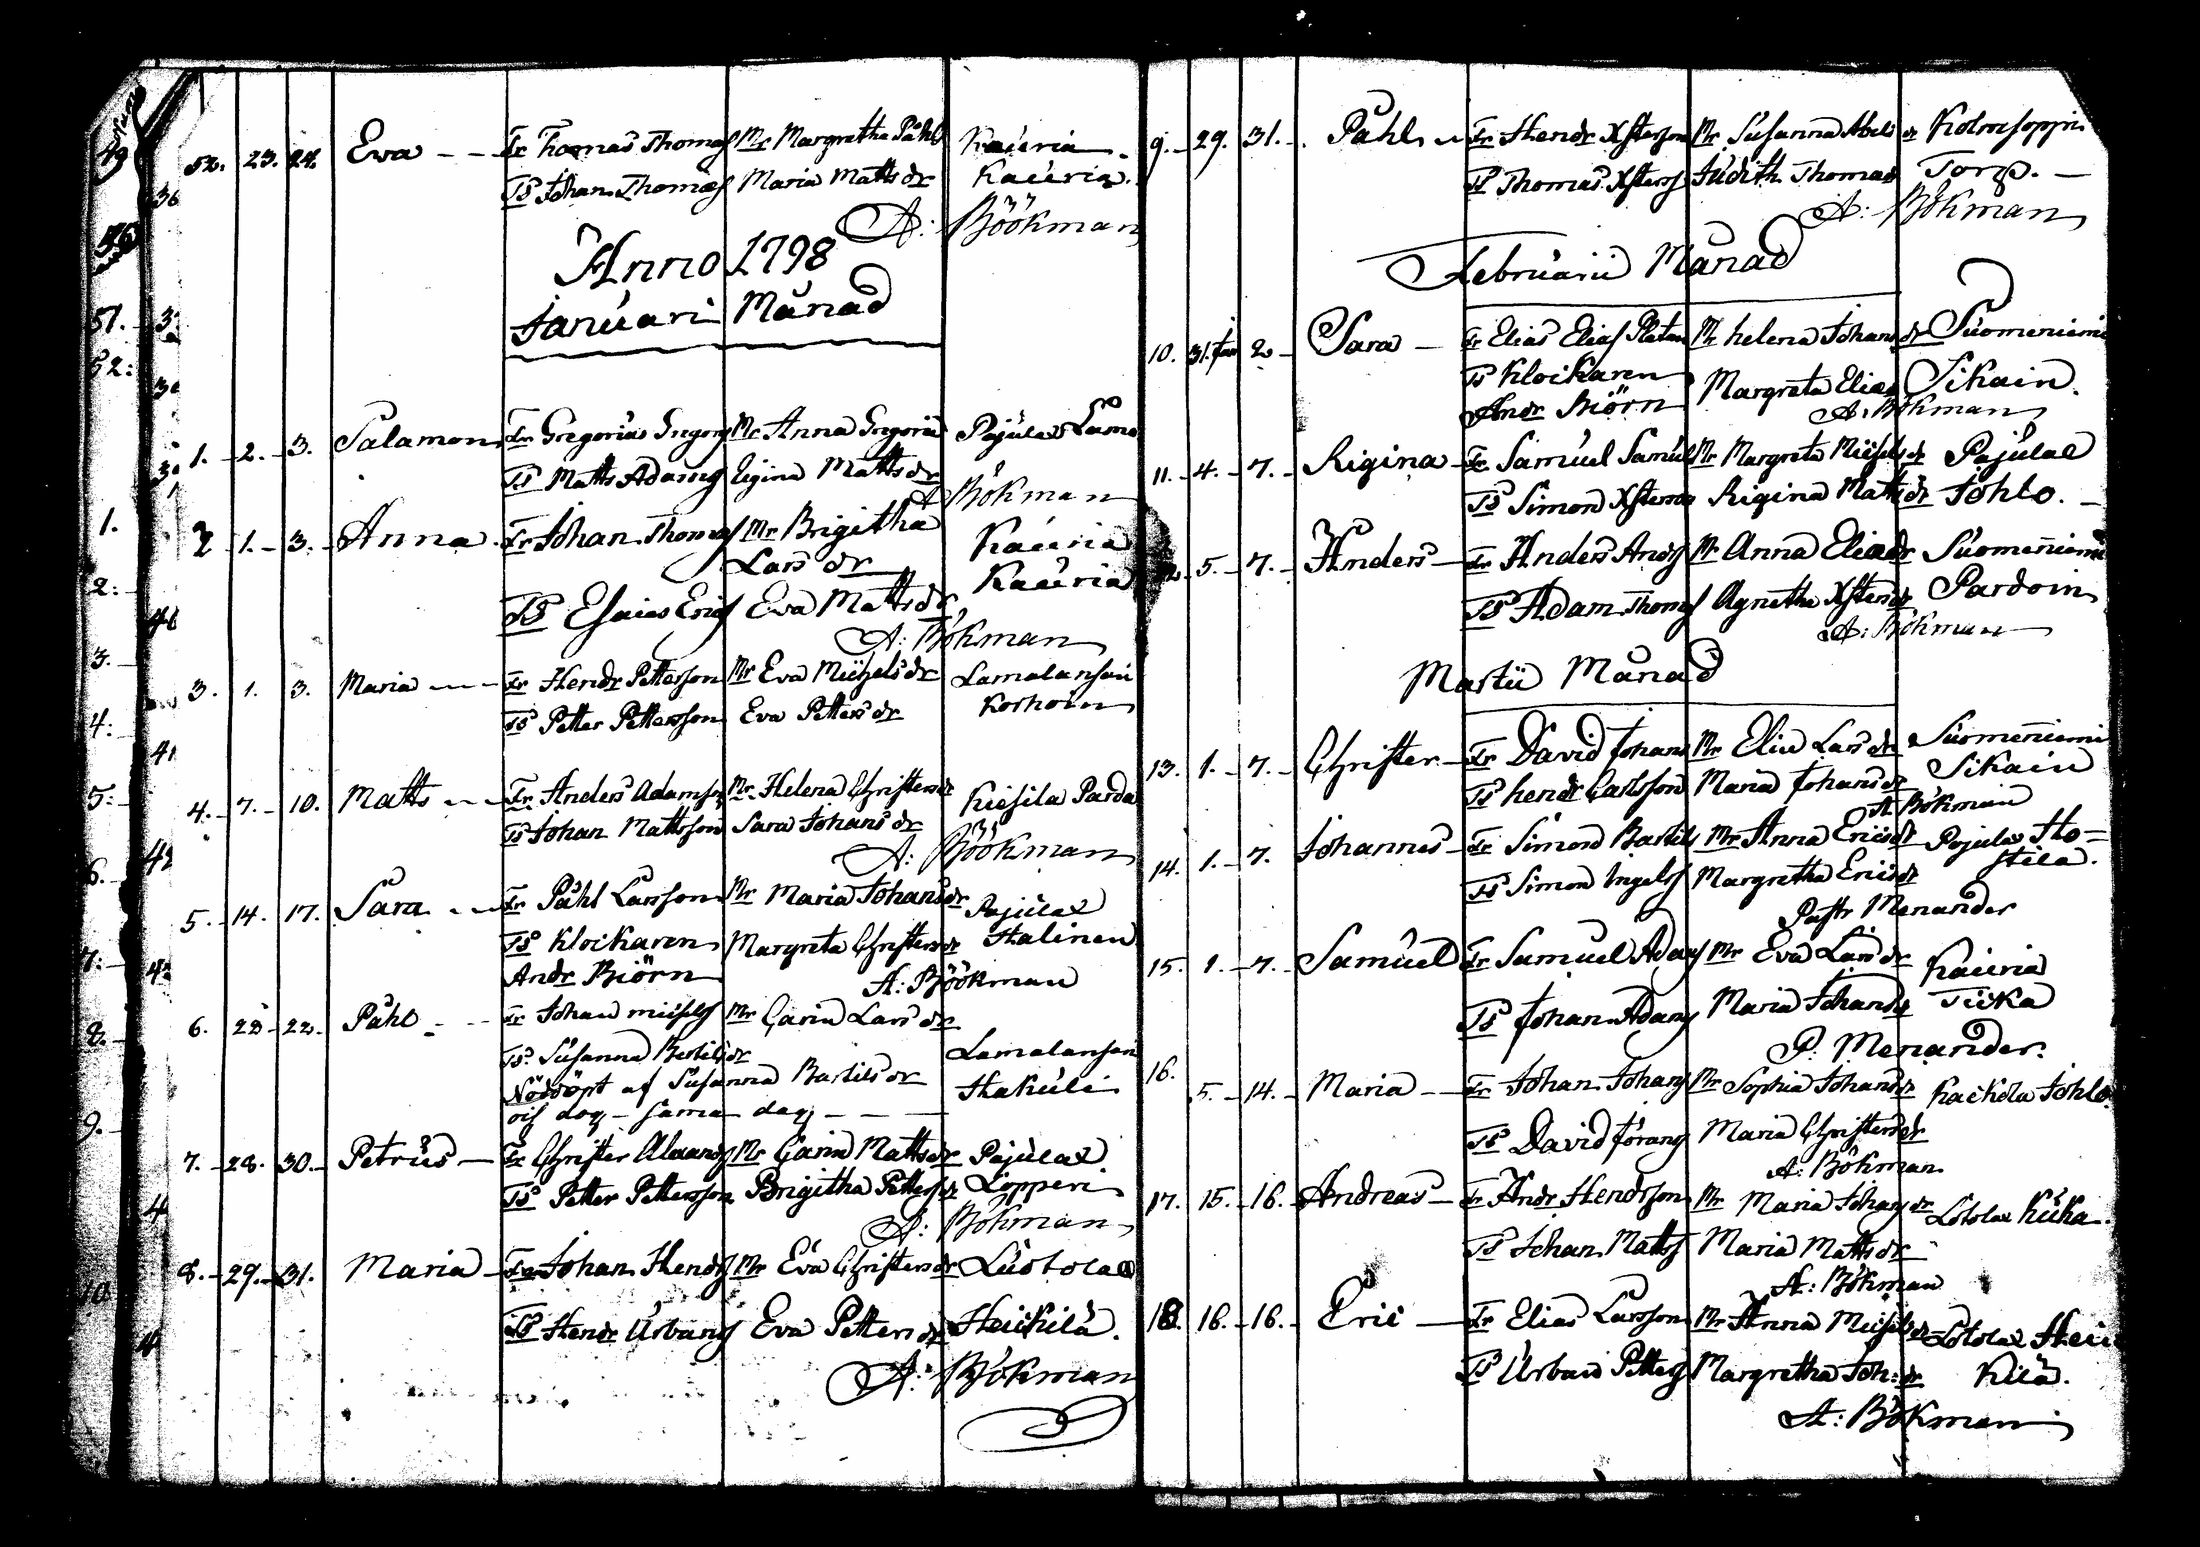 52. 23. 24. Eva -- Fr Thomas Thomass Mr Margretha Påhls Kauria
TS Johan Thomass Maria Matts dr Kauria.
A: Böökman
Anno 1798
Januari Månad
1. 2. 3. Salamon Fr Gregorius Gregors Mr Anna Gregorii Pajulax Lamo
TS Matts Adams Rigina Matts dr
A Bökman
2 1. 3. Anna. Fr Johan Thomas Mr Brigitha Kauria
Lars dr Kauria
TS Esaias Erics Eva Matts dr
A: Bökman
3. 1. 3. Maria --- Fr Hendr Petterson Mr Eva Michels dr Lamalansari
TS Petter Pettersson Eva Petters dr Korhoin
4. 7. 10. Matts -- Fr Anders Adamson Mr Helena Christers dr Kiesila Parda
TS Johan Mattsson Sara Johans dr
A: Böökman
5. 14. 17. Sara -- Fr Påhl Larsson Mr Maria Johans dr Pajulax
TS Klockaren Margreta Christers dr Halinen
Andr Biörn A: Böökman
6. 22. 22. Påhl -- Fr Johan Michels Mr Carin Lars dr
TS. Susanna Bertils dr Lamalansari
Nöddöpt af Susanna Bertils dr Hakuli
och dog - sama dag - - -
7. 28. 30. Petrus Fr Christer Adams Mr Carin Matts dr Pajulax
TS Petter Pettersson Brigitha Petters dr Lopperi
A: Bökman
8. 29. 31. Maria Fr Johan Hendrs Mr Eva Christers dr Luotolax
TS Hendr Urbans Eva Petters dr Heickilä.
A: Bökman
9. 29. 31. Påhl Fr Hendr Xsterson Mr Susanna Abels dr Kolmisoppi
TS Thomas Xsterss Judith Thomas Torp.
A: Bökman
Februarii Månad
10. 31. Jan 2 Sara Fr Elias Elias Platan Mr helena Johans dr Suomeniemi
TS Klockaren Margreta Elias Sikain.
Andr Biörn A: Bökman
11. 4. 7. Rigina Fr Samuel Samuels Mr Margreta Michels dr Pajulax
TS Simon Xsterson Rigina Matts dr Johlo.
12. 5. 7. Anders Fr Anders Anders Mr Anna Elias dr Suomeniemi
TS Adam Thomas Agnetha Xsters dr Pardoin
A: Bökman
Martii Månad
13. 1. 7. Christer Fr David Johans Mr Elin Lars dr Suomeniemi
TS hendr Carlsson Maria Johans dr Sikain
A Bökman
14. 1. 7. Johannes Fr Simon Bertils Mr Anna Erics dr Pajulax Ho=
TS Simon Ingels Margretha Erics dr stila.
Pastr Menander
15. 1. 7. Samuel Fr Samuel Adams Mr Eva Lars dr Kauria
TS Johan Adams Maria Johans dr Ticka
P: Menander.
16. 5. 14. Maria Fr Johan Johans Mr Sophia Johans dr Kackola Johlo.
TS David Jörans Maria Christers dr
A: Bökman
17. 15. 16. Andreas Fr Andr Hendrsson Mr Maria Johans dr Lotolax Kuha.
TS Johan Matts Maria Matts dr
A: Bökman
18. 16. 16. Eric Fr Elias Larsson Mr Anna Michels dr Lotolax Heic
TS Urban Petters Margretha Joh: dr kilä.
A: Bökman